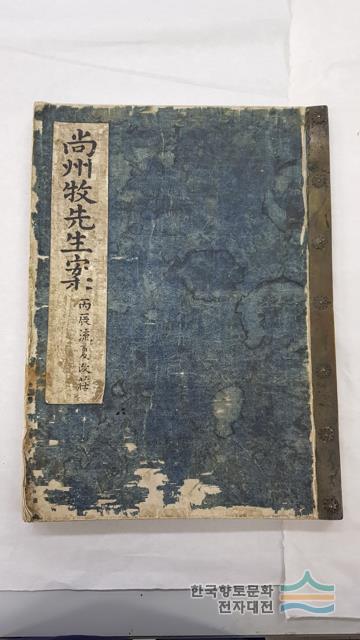 尚州牧先生案二
丙辰流夏改莊
한국향토문화
전자대전